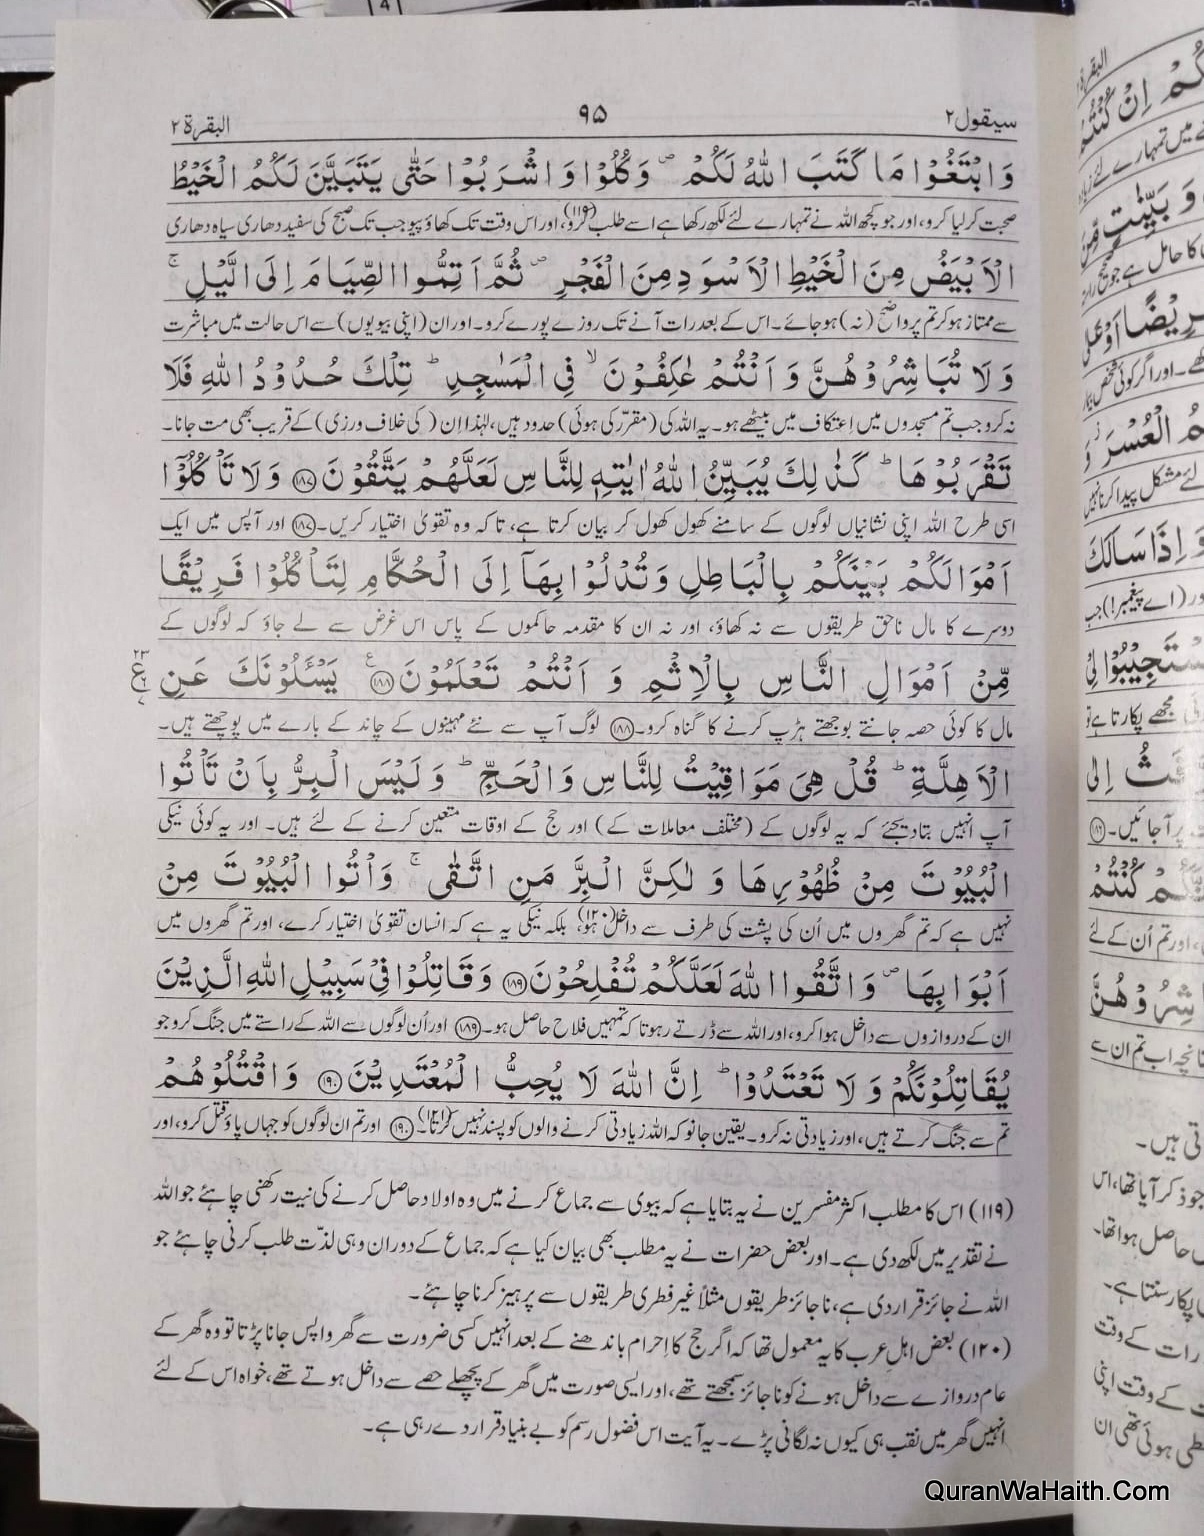 سیقول ۲
۹۵
البقرة ۲
وَابْتَغُوْا مَا كَتَبَ اللّٰهُ لَكُمْ ۪ وَكُلُوْا وَاشْرَبُوْا حَتّٰى يَتَبَيَّنَ لَكُمُ الْخَيْطُ
صحبت کرلیا کرو، اور جو کچھ اللہ نے تمہارے لئے لکھ رکھا ہے اسے طلب کرو،(۱۱۹) اور اس وقت تک کھاؤ پیو جب تک صبح کی سفید دھاری سیاہ دھاری
الْاَبْيَضُ مِنَ الْخَيْطِ الْاَسْوَدِ مِنَ الْفَجْرِ ۪ ثُمَّ اَتِمُّوا الصِّيَامَ اِلَى الَّيْلِ ۚ
سے ممتاز ہو کر تم پر واضح (نہ) ہوجائے۔ اس کے بعد رات آنے تک روزے پورے کرو۔ اور ان (اپنی بیویوں) سے اس حالت میں مباشرت
وَلَا تُبَاشِرُوْهُنَّ وَاَنْتُمْ عٰكِفُوْنَ ۙ فِى الْمَسٰجِدِ ؕ تِلْكَ حُدُوْدُ اللّٰهِ فَلَا
نہ کرو جب تم مسجدوں میں اعتکاف میں بیٹھے ہو۔ یہ اللہ کی (مقرّر کی ہوئی) حدود ہیں، لہٰذا اِن (کی خلاف ورزی) کے قریب بھی مت جانا۔
تَقْرَبُوْهَا ؕ كَذٰلِكَ يُبَيِّنُ اللّٰهُ اٰيٰتِهٖ لِلنَّاسِ لَعَلَّهُمْ يَتَّقُوْنَ ﴿۱۸۷﴾ وَلَا تَاْكُلُوْٓا
اسی طرح اللہ اپنی نشانیاں لوگوں کے سامنے کھول کھول کر بیان کرتا ہے، تاکہ وہ تقویٰ اختیار کریں۔﴿۱۸۷﴾ اور آپس میں ایک
اَمْوَالَكُمْ بَيْنَكُمْ بِالْبَاطِلِ وَتُدْلُوْا بِهَآ اِلَى الْحُكَّامِ لِتَاْكُلُوْا فَرِيْقًا
دوسرے کا مال ناحق طریقوں سے نہ کھاؤ، اور نہ ان کا مقدمہ حاکموں کے پاس اس غرض سے لے جاؤ کہ لوگوں کے
مِّنْ اَمْوَالِ النَّاسِ بِالْاِثْمِ وَاَنْتُمْ تَعْلَمُوْنَ ﴿۱۸۸﴾ يَسْـَٔلُوْنَكَ عَنِ
مال کا کوئی حصہ جانتے بوجھتے ہڑپ کرنے کا گناہ کرو۔﴿۱۸۸﴾ لوگ آپ سے نئے مہینوں کے چاند کے بارے میں پوچھتے ہیں۔
الْاَهِلَّةِ ؕ قُلْ هِىَ مَوَاقِيْتُ لِلنَّاسِ وَالْحَجِّ ؕ وَلَيْسَ الْبِرُّ بِاَنْ تَاْتُوا
آپ انہیں بتادیجئے کہ یہ لوگوں کے (مختلف معاملات کے) اور حج کے اوقات متعین کرنے کے لئے ہیں۔ اور یہ کوئی نیکی
الْبُيُوْتَ مِنْ ظُهُوْرِهَا وَلٰكِنَّ الْبِرَّ مَنِ اتَّقٰى ۚ وَاْتُوا الْبُيُوْتَ مِنْ
نہیں ہے کہ تم گھروں میں اُن کی پشت کی طرف سے داخل ہو،(۱۲۰) بلکہ نیکی یہ ہے کہ انسان تقویٰ اختیار کرے، اور تم گھروں میں
اَبْوَابِهَا ۪ وَاتَّقُوا اللّٰهَ لَعَلَّكُمْ تُفْلِحُوْنَ ﴿۱۸۹﴾ وَقَاتِلُوْا فِىْ سَبِيْلِ اللّٰهِ الَّذِيْنَ
ان کے دروازوں سے داخل ہوا کرو، اور اللہ سے ڈرتے رہو تاکہ تمہیں فلاح حاصل ہو۔﴿۱۸۹﴾ اور اُن لوگوں سے اللہ کے راستے میں جنگ کرو جو
يُقَاتِلُوْنَكُمْ وَلَا تَعْتَدُوْا ؕ اِنَّ اللّٰهَ لَا يُحِبُّ الْمُعْتَدِيْنَ ﴿۱۹۰﴾ وَاقْتُلُوْهُمْ
تم سے جنگ کرتے ہیں، اور زیادتی نہ کرو۔ یقین جانو کہ اللہ زیادتی کرنے والوں کو پسند نہیں کرتا۔(۱۲۱)﴿۱۹۰﴾ اور تم ان لوگوں کو جہاں پاؤ قتل کرو، اور
(۱۱۹) اس کا مطلب اکثر مفسرین نے یہ بتایا ہے کہ بیوی سے جماع کرنے میں وہ اولاد حاصل کرنے کی نیت رکھنی چاہئے جو اللہ
نے تقدیر میں لکھ دی ہے۔ اور بعض حضرات نے یہ مطلب بھی بیان کیا ہے کہ جماع کے دوران وہی لذّت طلب کرنی چاہئے جو
اللہ نے جائز قرار دی ہے، ناجائز طریقوں مثلاً غیر فطری طریقوں سے پرہیز کرنا چاہئے۔
(۱۲۰) بعض اہلِ عرب کا یہ معمول تھا کہ اگر حج کا اِحرام باندھنے کے بعد انہیں کسی ضرورت سے گھر واپس جانا پڑتا تو وہ گھر کے
عام دروازے سے داخل ہونے کو ناجائز سمجھتے تھے، اور ایسی صورت میں گھر کے پچھلے حصے سے داخل ہوتے تھے، خواہ اس کے لئے
انہیں گھر میں نقب ہی کیوں نہ لگانی پڑے۔ یہ آیت اس فضول رسم کو بے بنیاد قرار دے رہی ہے۔
QuranWaHaith.Com